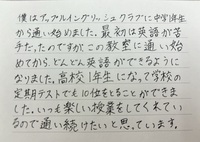 僕はアップルイングリッシュクラブに中学1年生
から通い始めました。最初は英語が苦
手だったのですがこの教室に通い始
めてから、どんどん英語ができるように
なりました。高校1年生になって学校の
定期テストでも10位をとることができま
した。いつも楽しい授業をしてくれてい
るので通い続けたいと思っています。